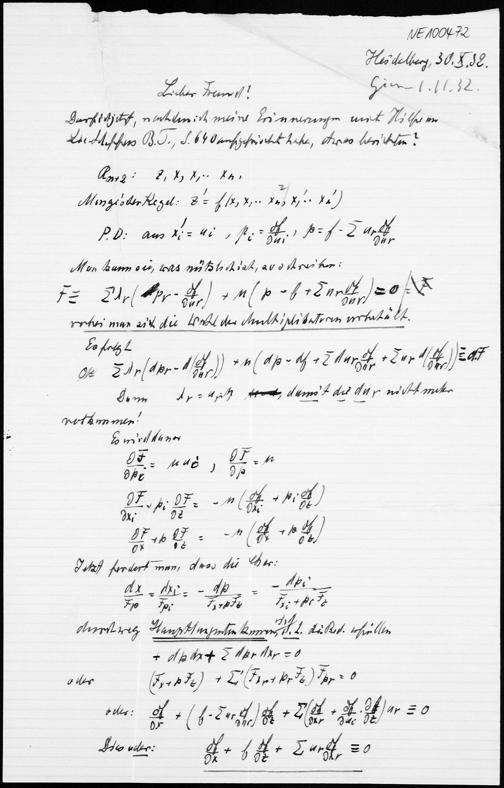 NE100472
Heidelberg, 30.X.32.
1.11.32.
Lieber Freund!
Darf ich jetzt, nachdem ich meine Erinnerungen mit Hilfe
B.T., S. 640 aufgefrischt habe, etwas berichten?
R_{n+2}: z, x, x_1 .. x_n.
z' = f(x, x_1 .. x_n, z, x_1' .. x_n')
P.D: aus x_i' = u_i, p_i = ∂f/∂u_i, p = f - Σ u_r ∂f/∂u_r
Man kann sie, was nützlich ist, so schreiben:
F ≡ Σ λ_r (p_r - ∂f/∂u_r) + μ (p - f + Σ u_r ∂f/∂u_r) = 0
wobei man sich die Wahl der Multiplikatoren vorbehält.
Es folgt
Σ λ_r (dp_r - d(∂f/∂u_r)) + μ (dp - df + Σ du_r ∂f/∂u_r + Σ u_r d(∂f/∂u_r)) ≡ dF
Dann λ_r = u_r μ, damit die du_r nicht mehr
vorkommen!
Es wird dann
∂F/∂p_i = μ u_i, ∂F/∂p = μ
∂F/∂x_i + p_i ∂F/∂z = - μ (∂f/∂x_i + p_i ∂f/∂z)
∂F/∂x + p ∂F/∂z = - μ (∂f/∂x + p ∂f/∂z)
Jetzt fordert man, dass die Char:
dx/F_p = dx_i/F_{p_i} = - dp/(F_x + pF_z) = - dp_i/(F_{x_i} + p_i F_z)
durchweg sind, d.h. die Bed. erfüllen
+ dp dx + Σ dp_r dx_r = 0
oder (F_x + pF_z) + Σ (F_{x_r} + p_r F_z) F_{p_r} = 0
oder: ∂f/∂x + (f - Σ u_r ∂f/∂u_r) ∂f/∂z + Σ (∂f/∂x_r + ∂f/∂u_r · ∂f/∂z) u_r ≡ 0
Dies oder: ∂f/∂x + f ∂f/∂z + Σ u_r ∂f/∂x_r ≡ 0